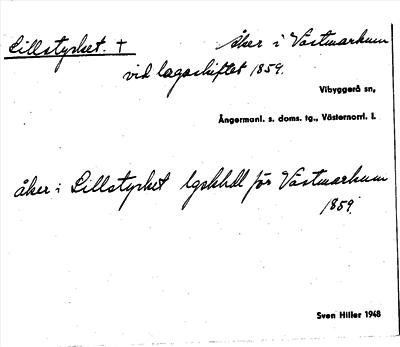 Lillstycket. † åker i Västmarkum
vid lagaskiftet 1859.
Vibyggerå sn,
Ångermanl. s. doms. tg., Västernorrl. l.
åker i Lillstycket lgskhdl för Västmarkum
1859.
Sven Hiller 1948